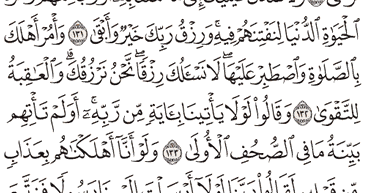 ٱلْحَيَوٰةِ ٱلدُّنْيَا لِنَفْتِنَهُمْ فِيهِ ۚ وَرِزْقُ رَبِّكَ خَيْرٌ وَأَبْقَىٰ ١٣١ وَأْمُرْ أَهْلَكَ
بِٱلصَّلَوٰةِ وَٱصْطَبِرْ عَلَيْهَا ۖ لَا نَسْـَٔلُكَ رِزْقًا ۖ نَّحْنُ نَرْزُقُكَ ۗ وَٱلْعَـٰقِبَةُ
لِلتَّقْوَىٰ ١٣٢ وَقَالُوا۟ لَوْلَا يَأْتِينَا بِـَٔايَةٍ مِّن رَّبِّهِۦٓ ۚ أَوَلَمْ تَأْتِهِم
بَيِّنَةُ مَا فِى ٱلصُّحُفِ ٱلْأُولَىٰ ١٣٣ وَلَوْ أَنَّآ أَهْلَكْنَـٰهُم بِعَذَابٍ